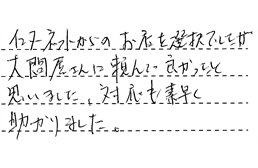 インターネットからの お店を選択でしたが
大問屋さんに頼んで良かったと
思いました。対応も素早く
助かりました。